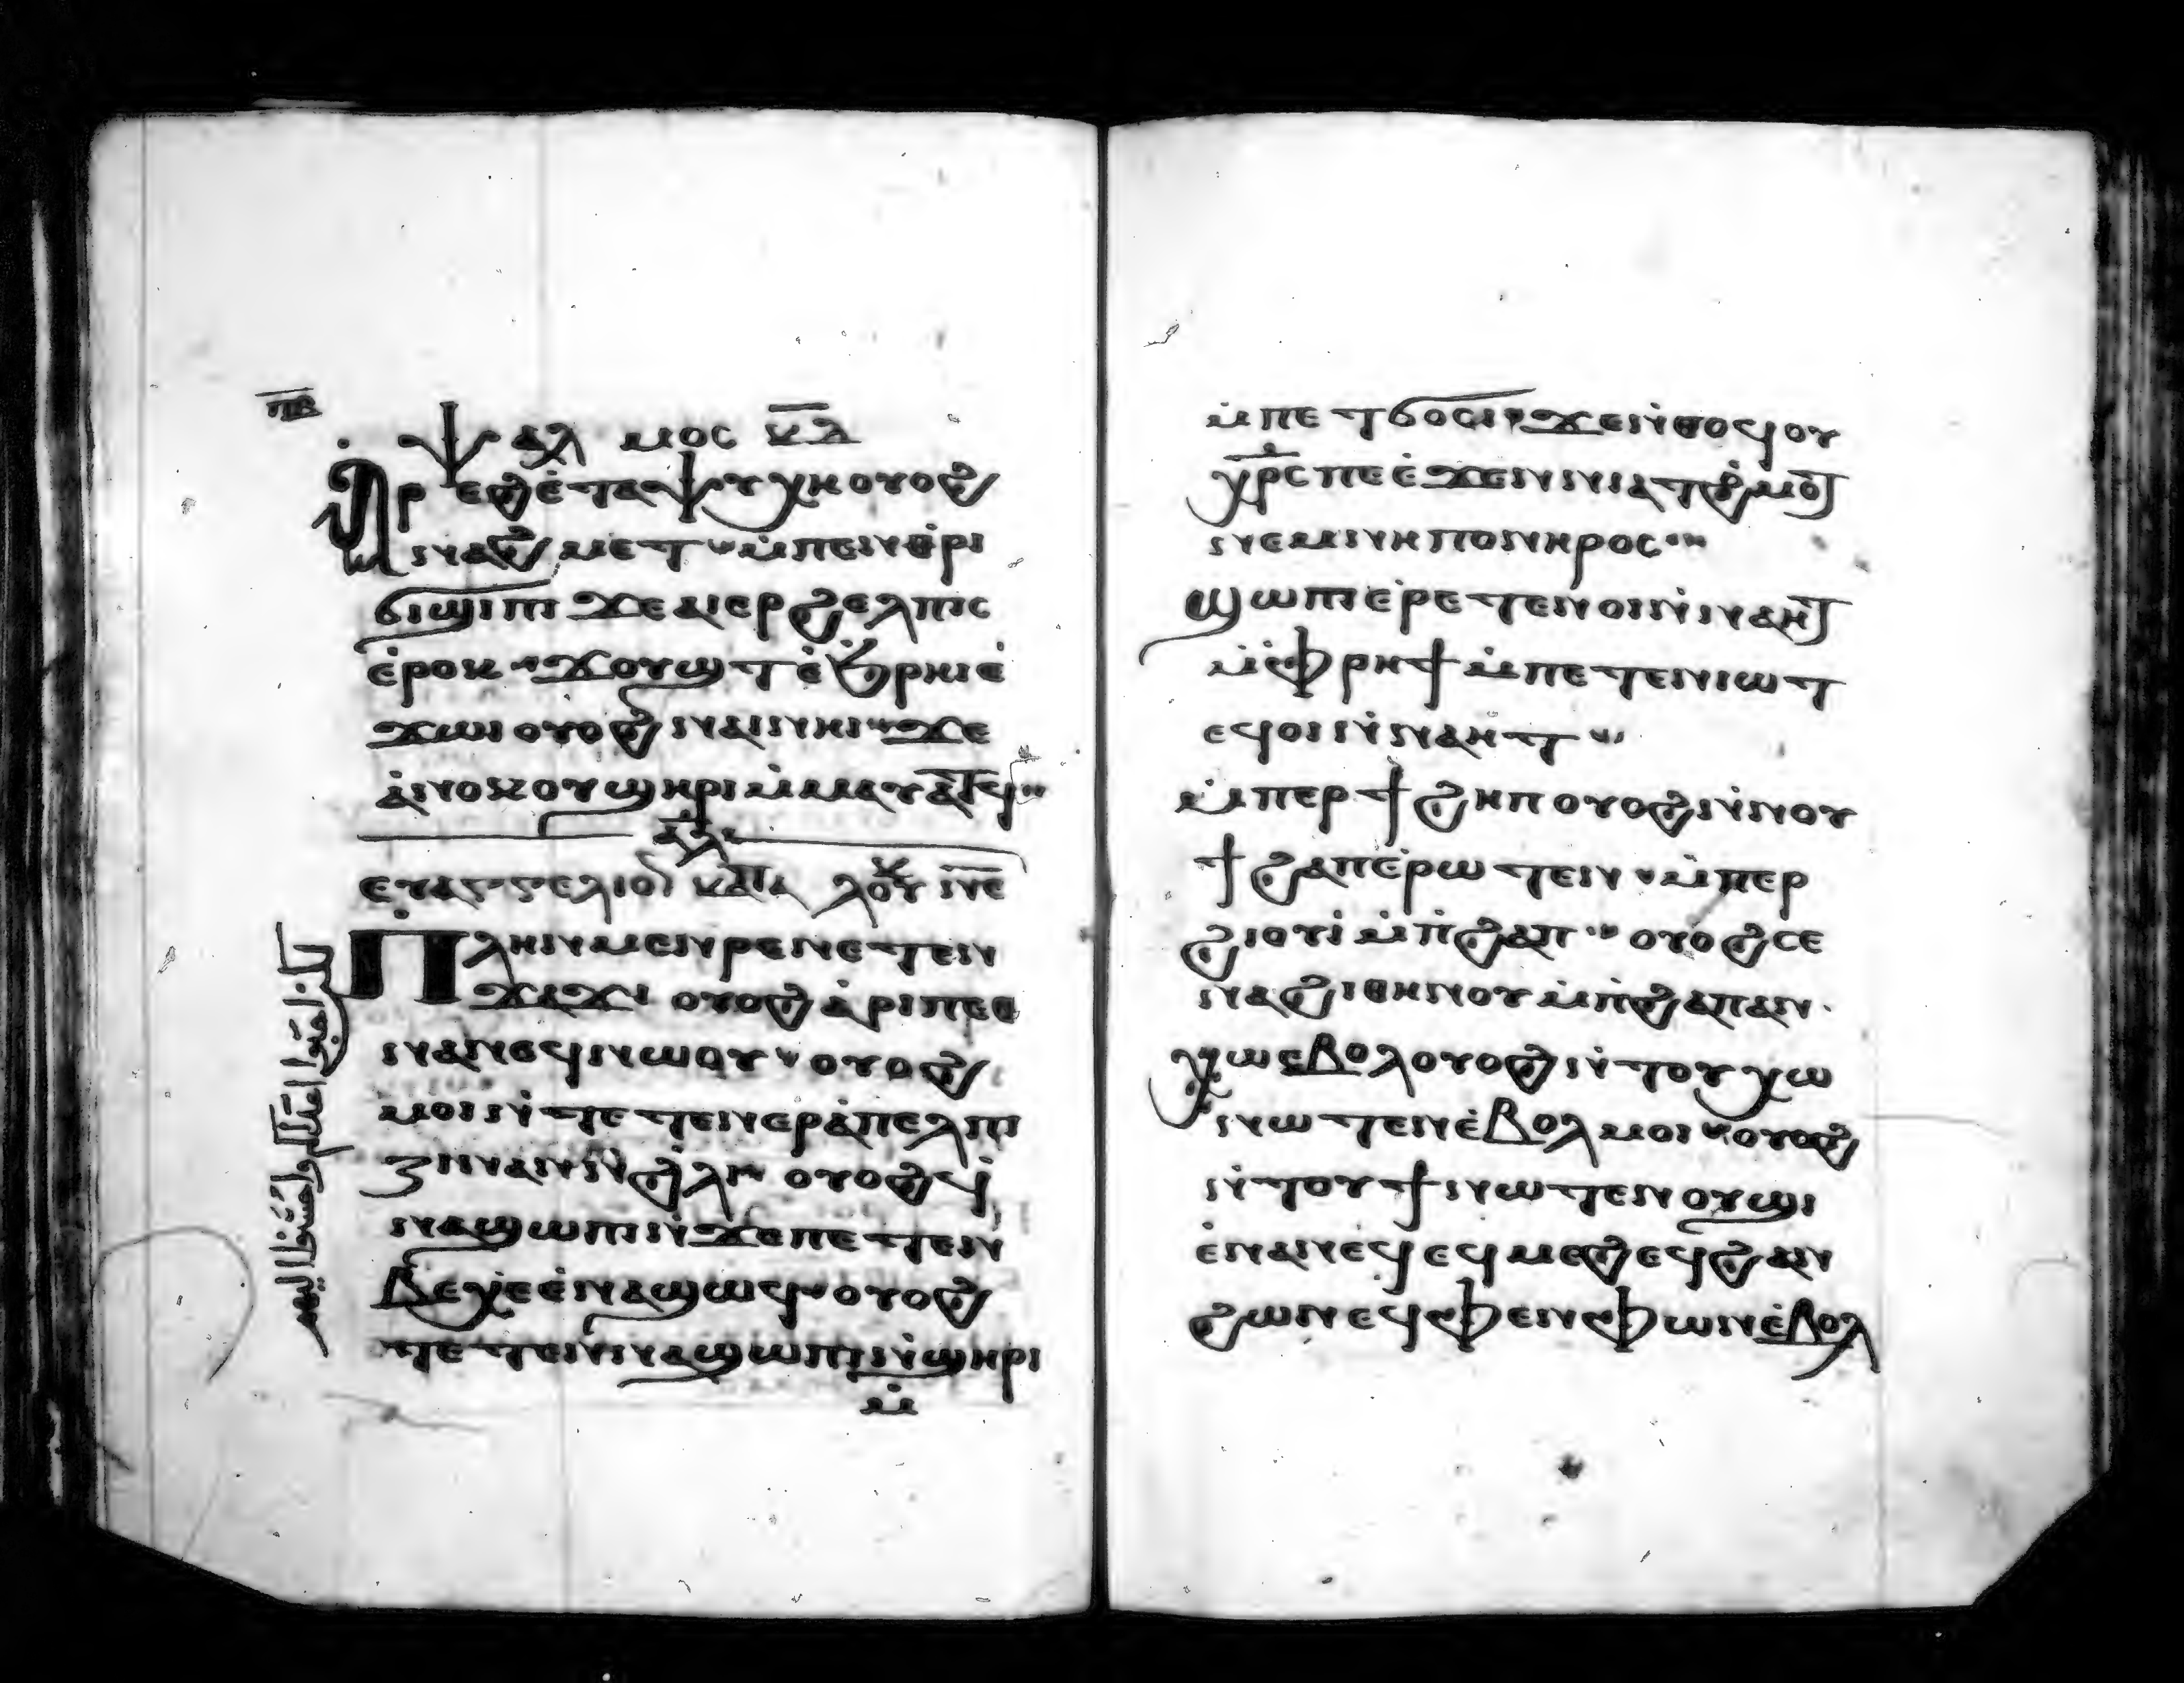 ⲡ̅ⲃ̅
ⲯⲁⲗⲙⲟⲥ ⲕ̅ⲇ̅
ⲁ̀ⲣⲉϩ ⲉ̀ⲧⲁⲯⲩⲭⲏ ⲟⲩⲟϩ
ⲛⲁϩⲙⲉⲧ ⲙ̀ⲡⲉⲛⲑⲣⲓ
ϭⲓϣⲓⲡⲓ ϫⲉ ⲁⲓⲉⲣϩⲉⲗⲡⲓⲥ
ⲉ̀ⲣⲟⲕ ϫⲟⲩϣⲧ ⲉ̀ϧⲣⲏⲓ ⲉ̀
ϫⲱⲓ ⲟⲩⲟϩ ⲛⲁⲓ ⲛⲏⲓ ϫⲉ
ⲁ̀ⲛⲟⲕ ⲟⲩϣⲏⲣⲓ ⲙ̀ⲙⲁⲩⲁⲧϥ
ⲁ̅ⲗ̅
ⲉⲩⲁⲅⲅⲉⲗⲓⲟⲛ ⲕⲁⲧⲁ ⲗⲟⲩⲕ ⲛ̅ⲉ̅
ⲡⲗⲏⲛ ⲙⲉⲛⲣⲉ ⲛⲉⲧⲉⲛ
ϫⲁϫⲓ ⲟⲩⲟϩ ⲁ̀ⲣⲓⲡⲉⲑ
ⲛⲁⲛⲉϥ ⲛⲱⲟⲩ ⲟⲩⲟϩ
ⲙⲟⲓ ⲛ̀ⲧⲉⲧⲉⲛⲉⲣⲁ̀ⲡⲉⲗⲡⲓ
ⲍⲓⲛ ⲁⲛ ⲛ̀ϩⲗⲓ ⲟⲩⲟϩ ϥ̀
ⲛⲁϣⲱⲡⲓ ⲛ̀ϫⲉ ⲡⲉⲧⲉⲛ
ⲃⲉⲭⲉ ⲉ̀ⲛⲁϣⲱϥ ⲟⲩⲟϩ
ⲧⲉⲧⲉⲛⲛⲁϣⲱⲡⲓ ⲛ̀ϣⲏⲣⲓ
ⲙ̀
لكن احبوا اعداكم واحسنوا اليهم
ⲙ̀ⲡⲉⲧϭⲟⲥⲓ ϫⲉ ⲛ̀ⲑⲟϥ ⲟⲩ
ⲭⲣ̅ⲥ ⲡⲉ ⲉ̀ϫⲉⲛ ⲛⲓⲁⲧϩ̀ⲙⲟⲧ
ⲛⲉⲙ ⲛⲏ ⲡⲟⲛⲏⲣⲟⲥ
ϣⲱⲡⲓ ⲉ̀ⲣⲉⲧⲉⲛⲟⲓ ⲛ̀ⲛⲁⲏⲧ
ⲙ̀ⲫⲣⲏϯ ⲙ̀ⲡⲉⲧⲉⲛⲓⲱⲧ
ⲉϥⲟⲓ ⲛ̀ⲛⲁⲏⲧ
ⲙ̀ⲡⲉⲣϯϩⲁⲡ ⲟⲩⲟϩ ⲛ̀ⲛⲟⲩ
ϯϩⲁⲡ ⲉ̀ⲣⲱⲧⲉⲛ ⲙ̀ⲡⲉⲣ
ϩⲓⲟⲩⲓ̀ ⲙ̀ⲡϩⲁⲡ ⲟⲩⲟϩ ⲥⲉ
ⲛⲁϩⲓⲑⲏⲛⲟⲩ ⲙ̀ⲡϩⲁⲡ ⲁⲛ
ⲭⲱ ⲉⲃⲟⲗ ⲟⲩⲟϩ ⲛ̀ⲧⲟⲩⲭⲱ
ⲛⲱⲧⲉⲛ ⲉ̀ⲃⲟⲗ ⲙⲟⲓ ⲟⲩⲟϩ
ⲛ̀ⲧⲟⲩϯ ⲛⲱⲧⲉⲛ ⲟⲩϣⲓ
ⲉ̀ⲛⲁⲛⲉϥ ⲉϥⲙⲉϩ ⲉϥϩⲁⲛ
ϩⲱⲛ ⲉϥⲫⲉⲛⲫⲱⲛ ⲉ̀ⲃⲟⲗ